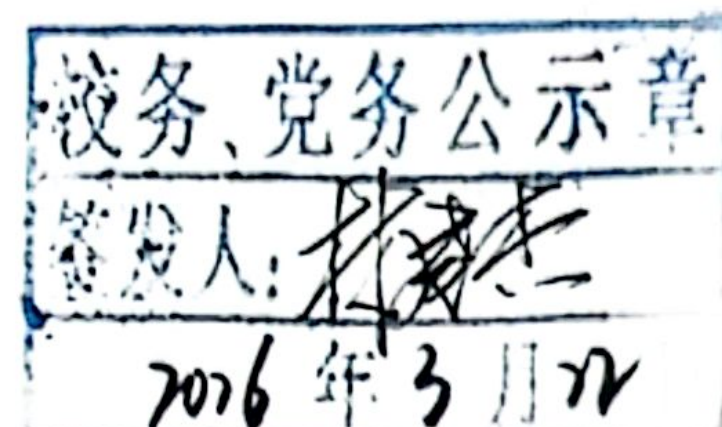 校务、党务公示章
签发人:林
2026年3月22